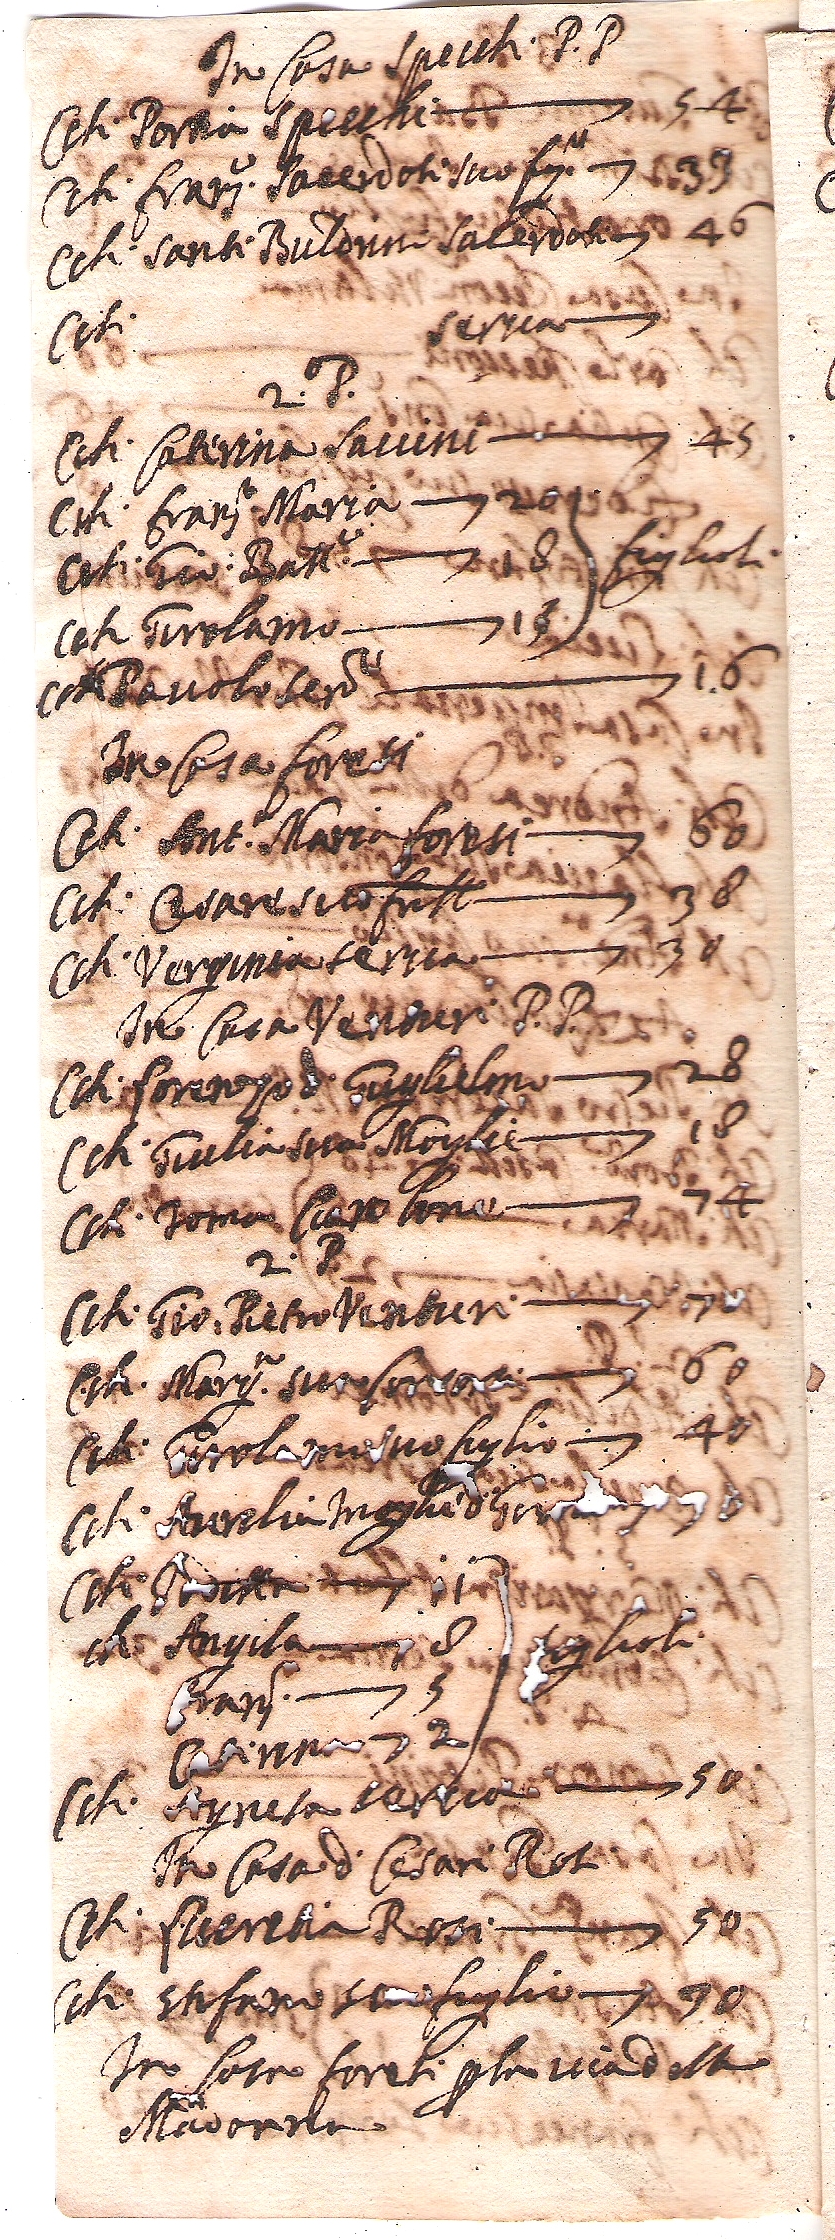 In Casa Specchi P. P.
CCh. Portia Specchi 54
CCh. Franc.º Sacerdoti suo 33
CCh. Santi Sacerdoti 46
CCh. serva
2.º P.
CCh. Caterina Saccini 45
CCh. Franc.º Maria 20
CCh. Gio: Batt.ª 18 figlioli
CCh Girolamo 13
CCh Pauolo ser.ʳᵉ 16
In Casa Foresi
CCh. Ant.º Maria Foresi 60
CCh. Cesare suo frātt 38
CCh. Verginia serva 30
In Casa Venturi P. P.
CCh. Lorenzo d. Guglielmo 28
CCh. Giulia sua Moglie 18
CCh. Toma 74
2. P.
CCh. Gio. Pietro Venturi 70
CCh. Marg.ᵗᵃ sua 60
CCh. Girolamo suo figlio 40
CCh. Aurelia Moglie d. Giro
CCh. 11
CCh Angila 8 figlioli
Franc. 5
Caterina 2
CCh. Agnesa serva 50
In Casa d. Cesari
CCh. Lucretia Rosi 50
CCh. Stefano suo figlio 30
In Casa Foresi p la via della
Madonna